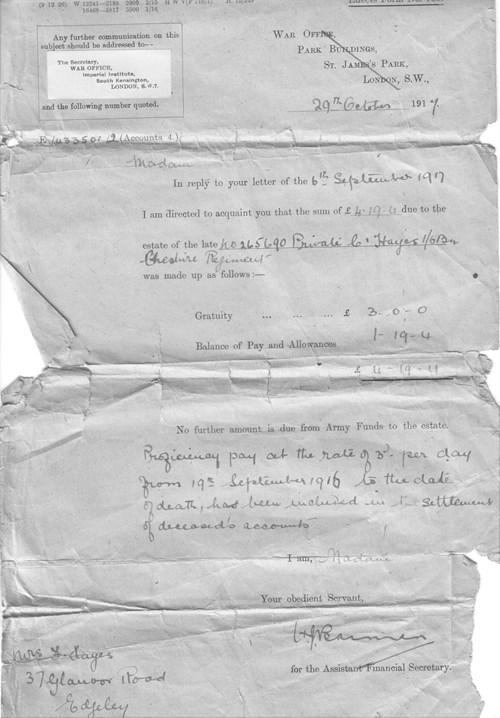 (9 12 26) W 12241—2189 2000 2/15 H W V
16408—4817 5500 1/16
Any further communication on this
subject should be addressed to—
The Secretary,
WAR OFFICE,
Imperial Institute,
South Kensington,
LONDON, S.W.7.
and the following number quoted.
WAR OFFICE,
PARK BUILDINGS,
ST. JAMES'S PARK,
LONDON, S.W.,
29th October 1917.
E/433501/2 (Accounts 4.)
Madam
In reply to your letter of the 6th September 1917
I am directed to acquaint you that the sum of £ 4-19-4 due to the
estate of the late No 265690 Private C. Hayes 1/6 Bn
Cheshire Regiment
was made up as follows:—
Gratuity ... ... ... £ 3-0-0
Balance of Pay and Allowances 1-19-4
£ 4-19-4
No further amount is due from Army Funds to the estate.
Proficiency pay at the rate of 3d. per day
from 19th September 1916 to the date
of death, has been included in the settlement
of deceased's accounts
I am, Madam
Your obedient Servant,
for the Assistant Financial Secretary.
Mrs Hayes
37 Road
Edgeley